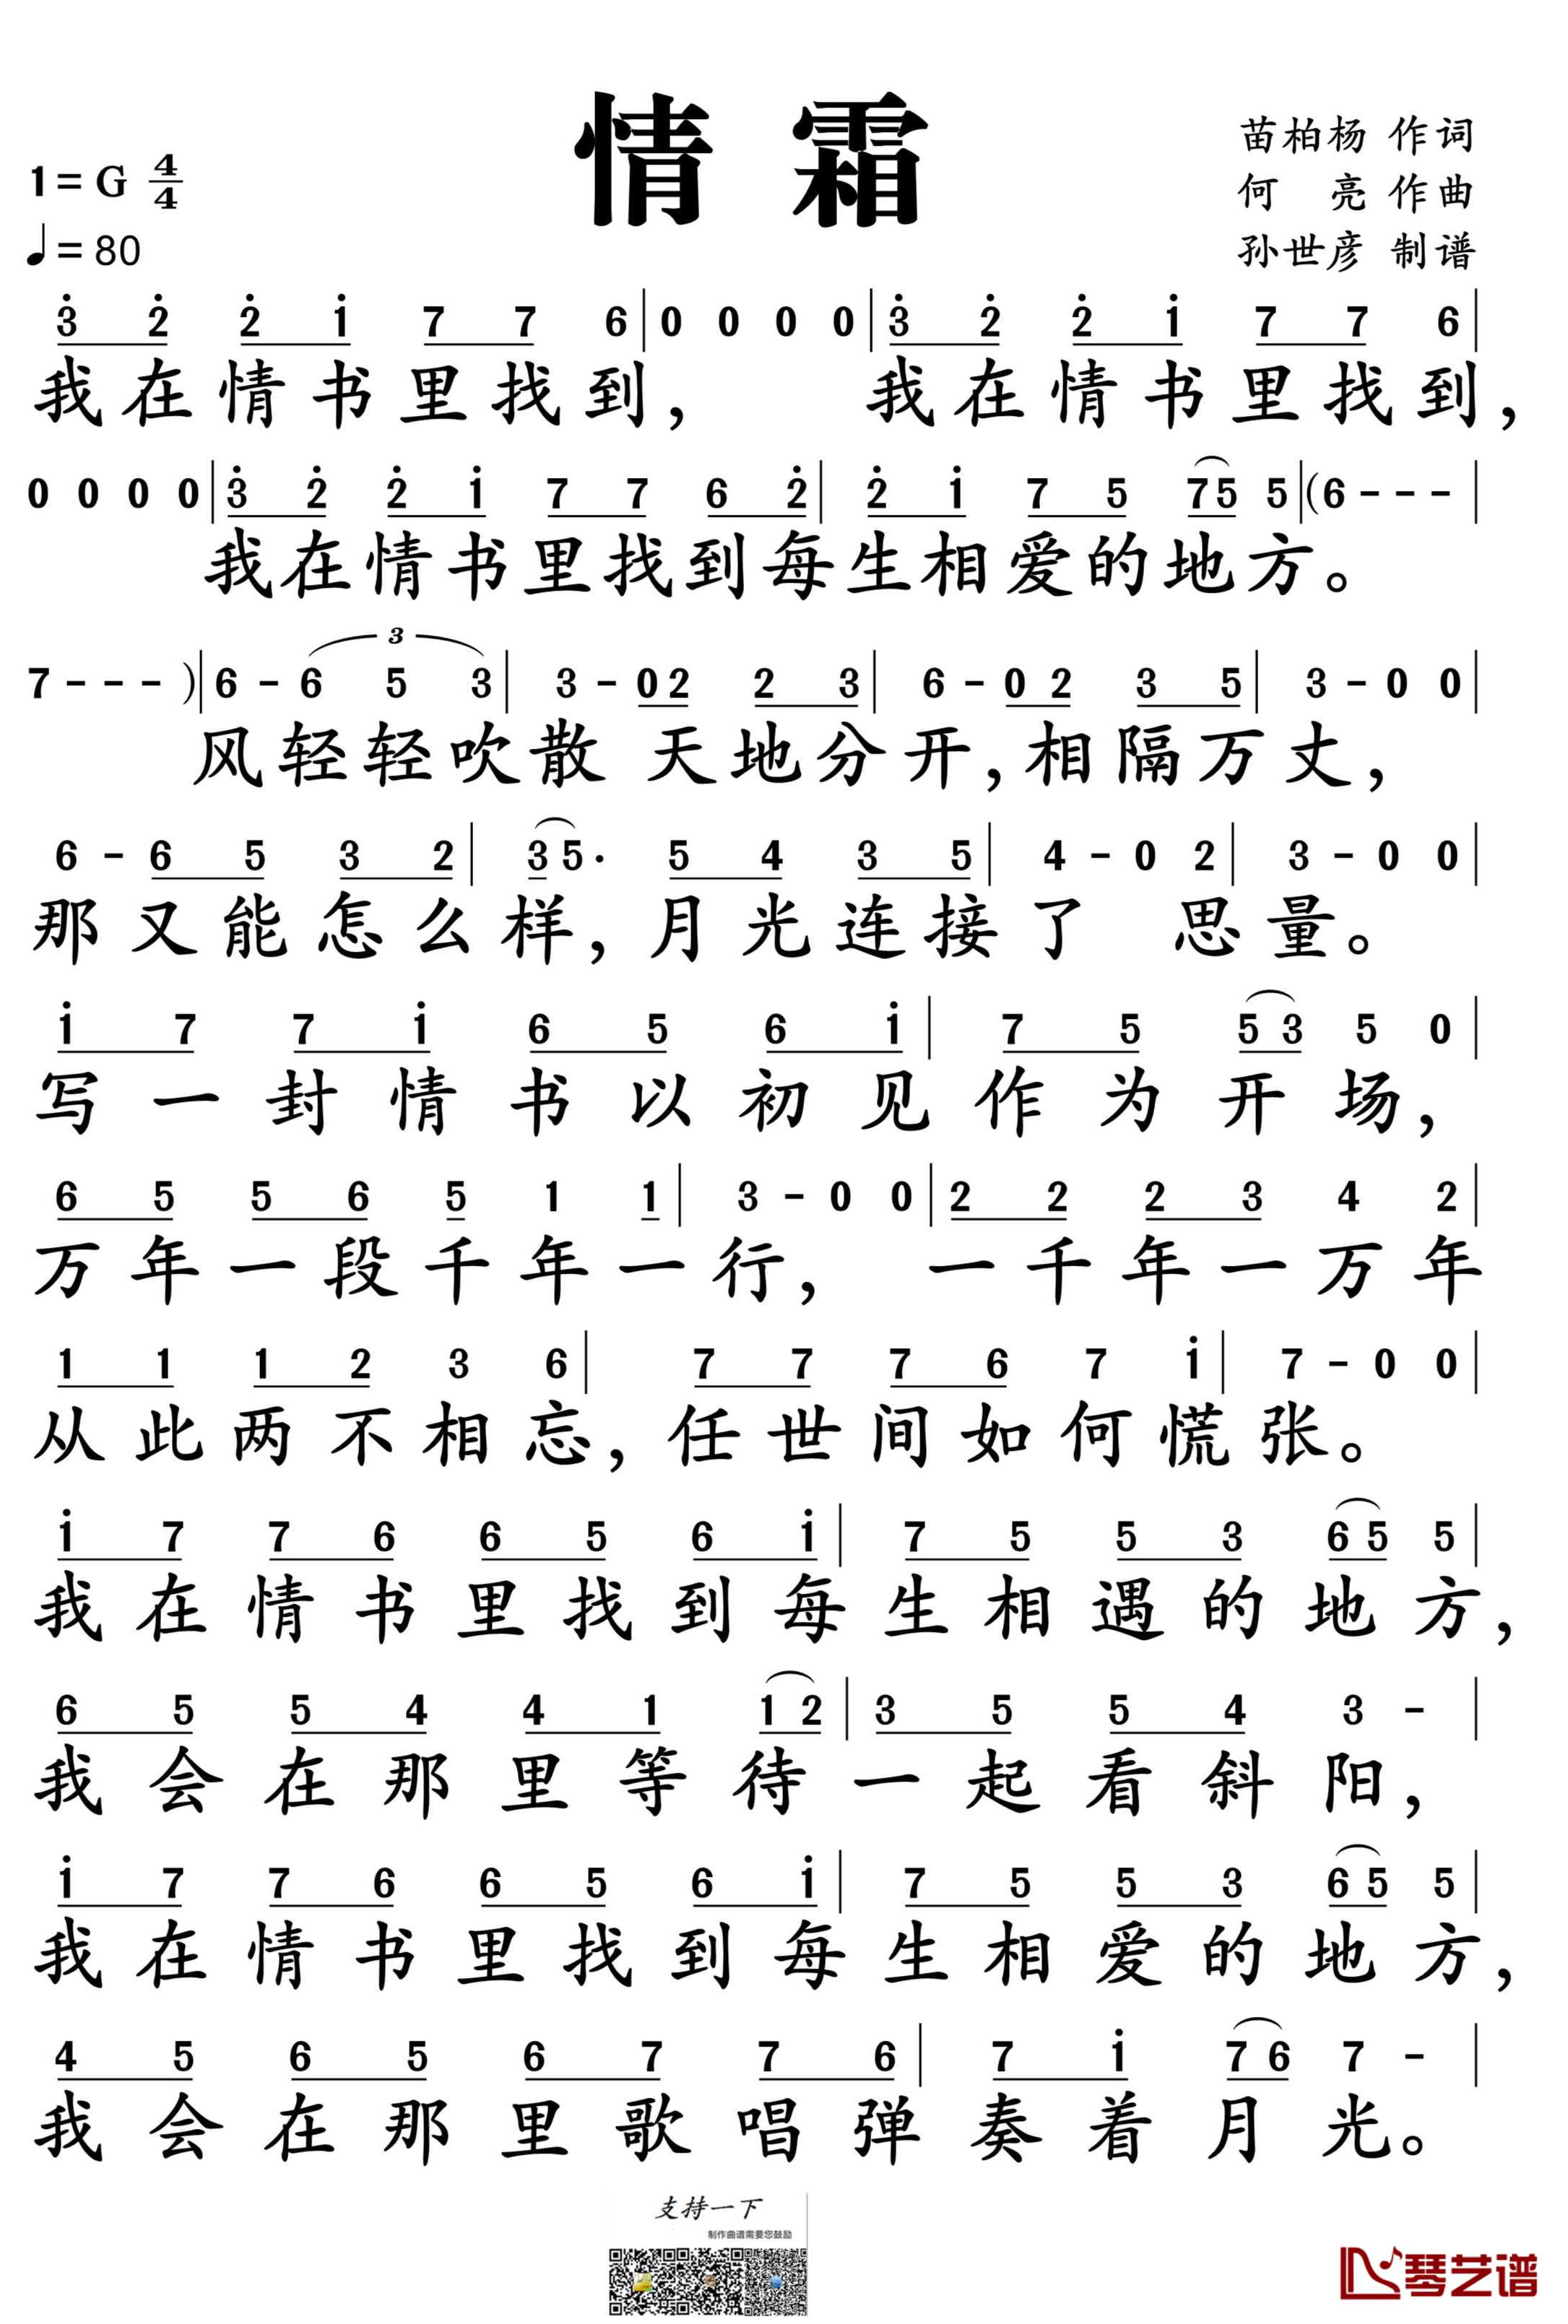 情霜
苗柏杨 作词
1=G 4/4
何 亮 作曲
♩=80
孙世彦 制谱
3̇ 2̇ 2̇ 1̇ 7 7 6 | 0 0 0 0 | 3̇ 2̇ 2̇ 1̇ 7 7 6 |
我在情书里找到， 我在情书里找到，
0 0 0 0 | 3̇ 2̇ 2̇ 1̇ 7 7 6 2̇ | 2̇ 1̇ 7 5 75 5 | (6 - - - |
我在情书里找到每生相爱的地方。
7 - - - ) | 6 - 6 5 3 | 3 - 0 2 2 3 | 6 - 0 2 3 5 | 3 - 0 0 |
3
风轻轻吹散 天地分开,相隔万丈，
6 - 6 5 3 2 | 35· 5 4 3 5 | 4 - 0 2 | 3 - 0 0 |
那又能怎么样，月光连接了 思量。
1̇ 7 7 1̇ 6 5 6 1̇ | 7 5 53 5 0 |
写一封情书以初见作为开场，
6 5 5 6 5 1 1 | 3 - 0 0 | 2 2 2 3 4 2 |
万年一段千年一行， 一千年一万年
1 1 1 2 3 6 | 7 7 7 6 7 1̇ | 7 - 0 0 |
从此两不相忘，任世间如何慌张。
1̇ 7 7 6 6 5 6 1̇ | 7 5 5 3 65 5 |
我在情书里找到每生相遇的地方，
6 5 5 4 4 1 12 | 3 5 5 4 3 - |
我会在那里等待一起看斜阳，
1̇ 7 7 6 6 5 6 1̇ | 7 5 5 3 65 5 |
我在情书里找到每生相爱的地方，
4 5 6 5 6 7 7 6 | 7 1̇ 76 7 - |
我会在那里歌唱弹奏着月光。
支持一下
制作曲谱需要您鼓励
琴艺谱